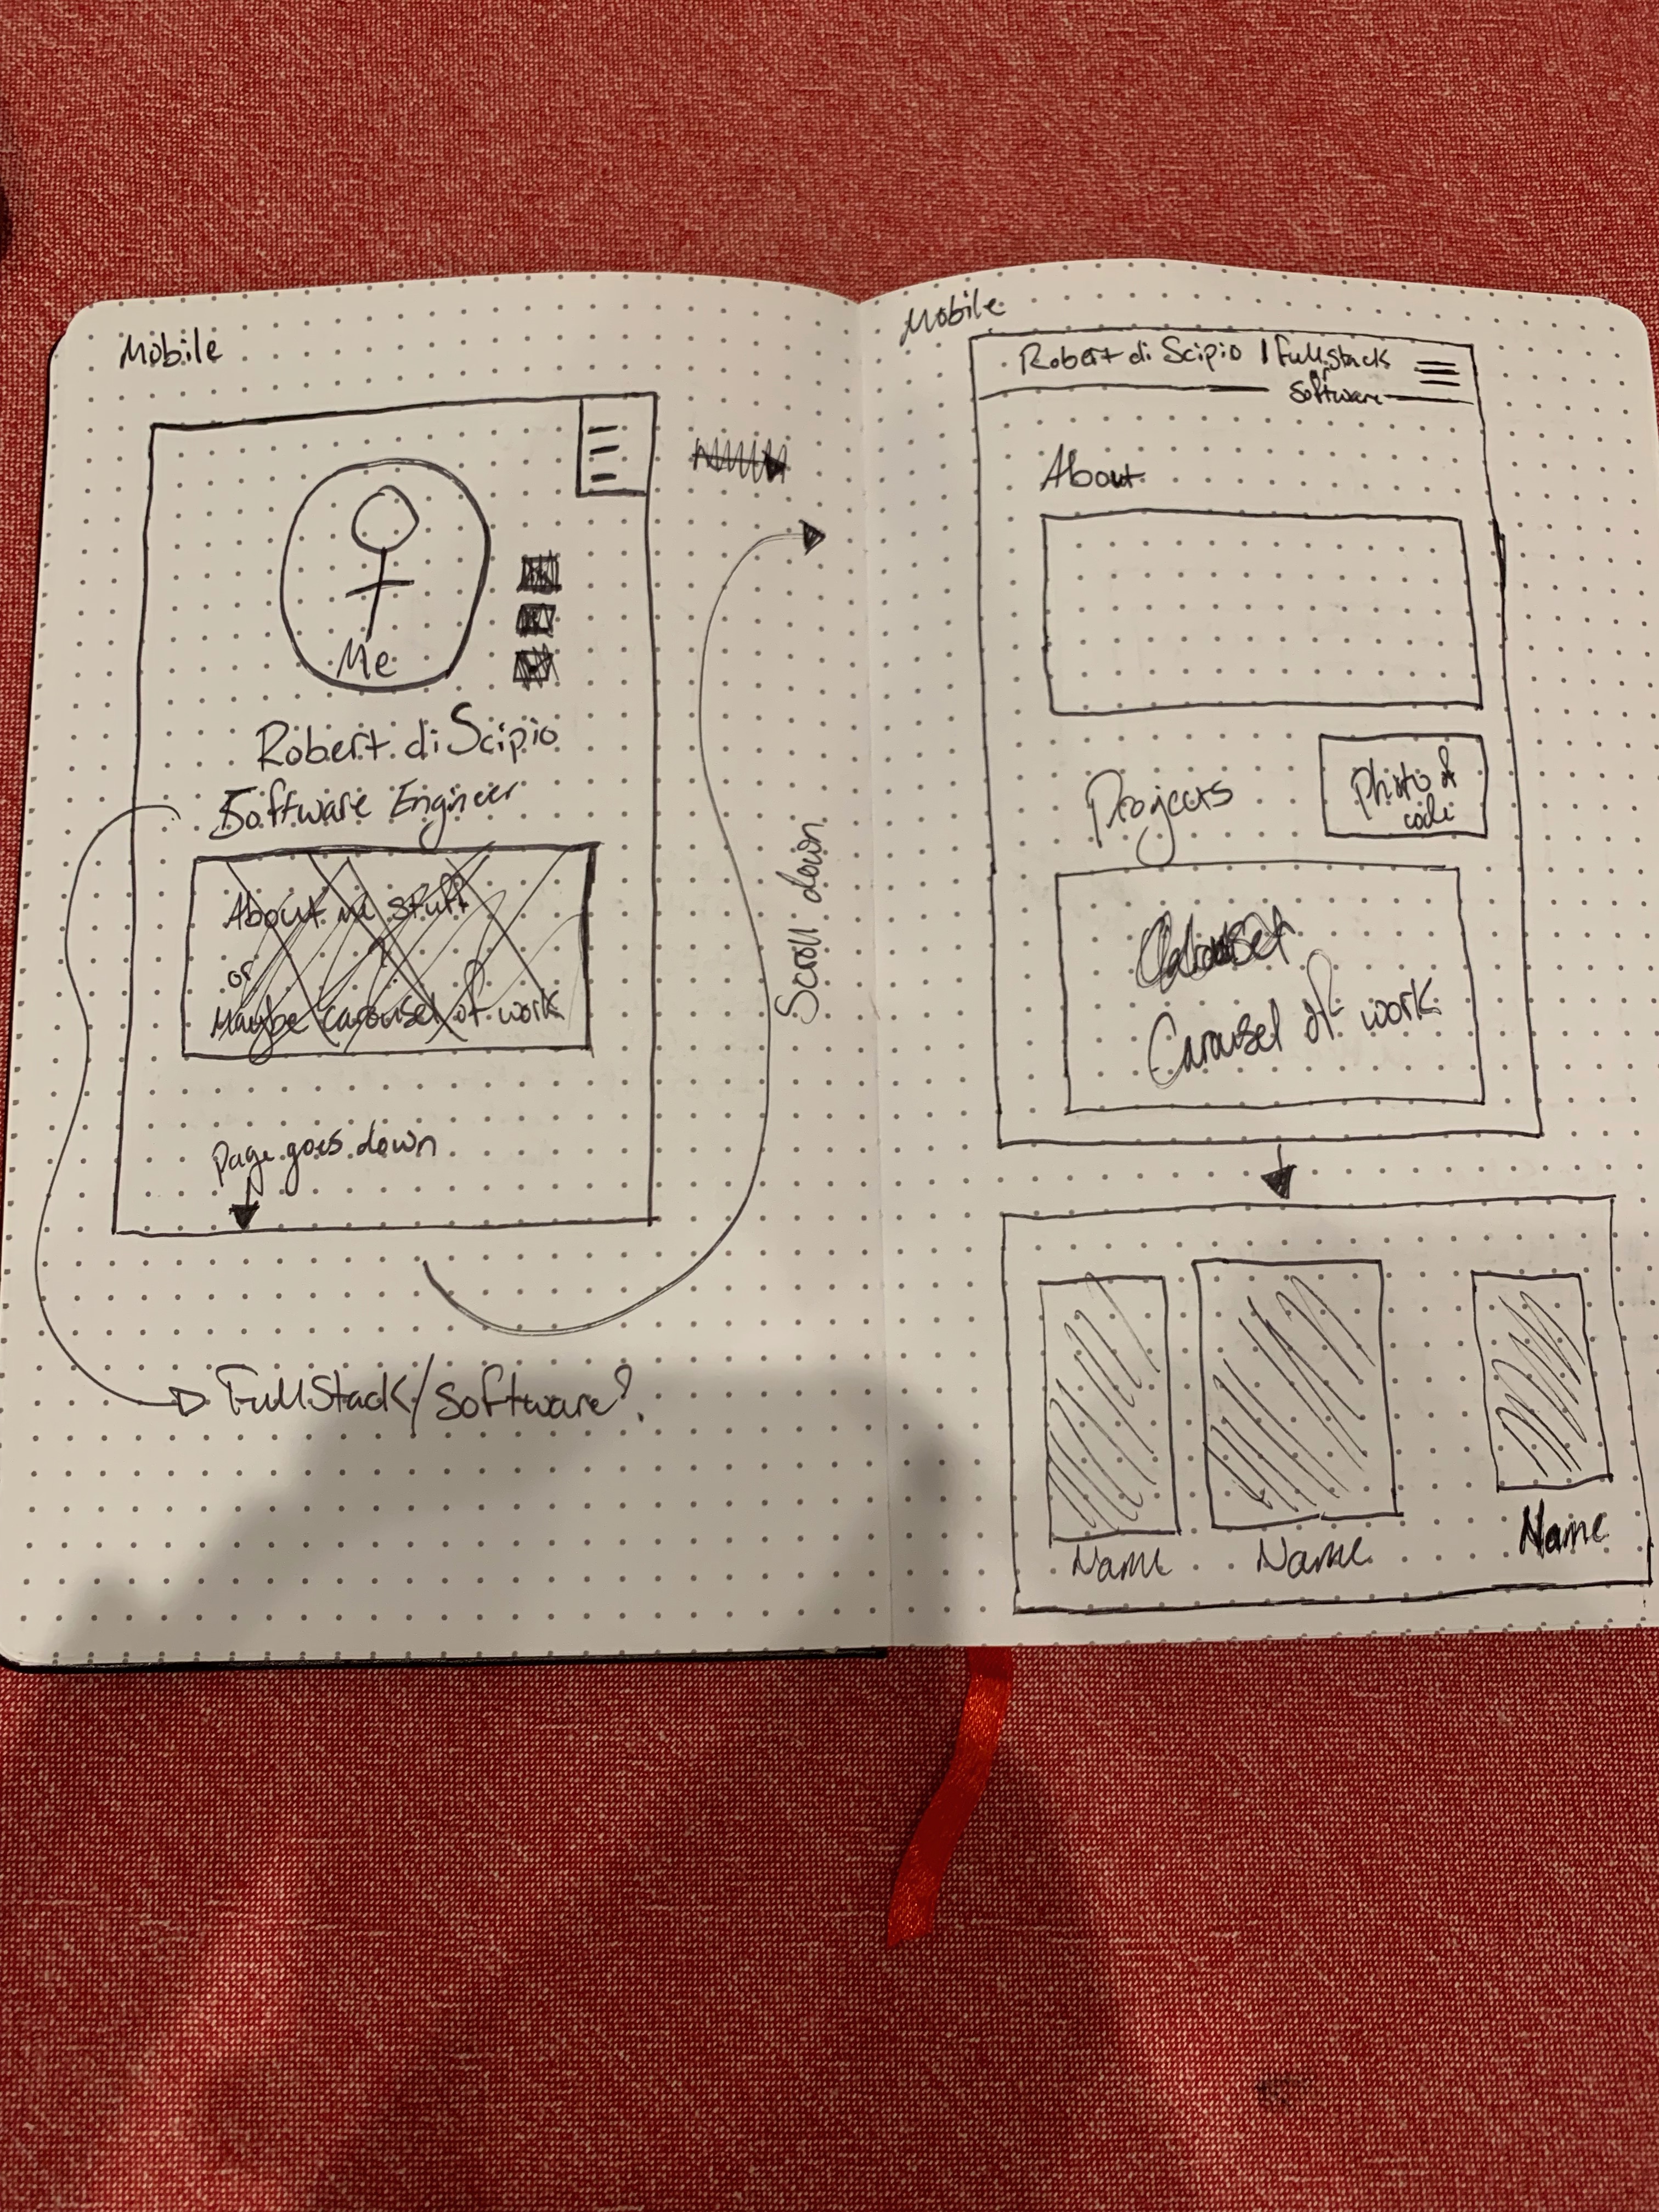 Mobile
Me
Robert di Scipio
Software Engineer
About me stuff
or
Maybe carousel of work
Page goes down
FullStack/Software?
Scroll down
Mobile
Robert di Scipio | Fullstack
or
Software
About
Projects
Photo of
code
Carousel of work
Name
Name
Name